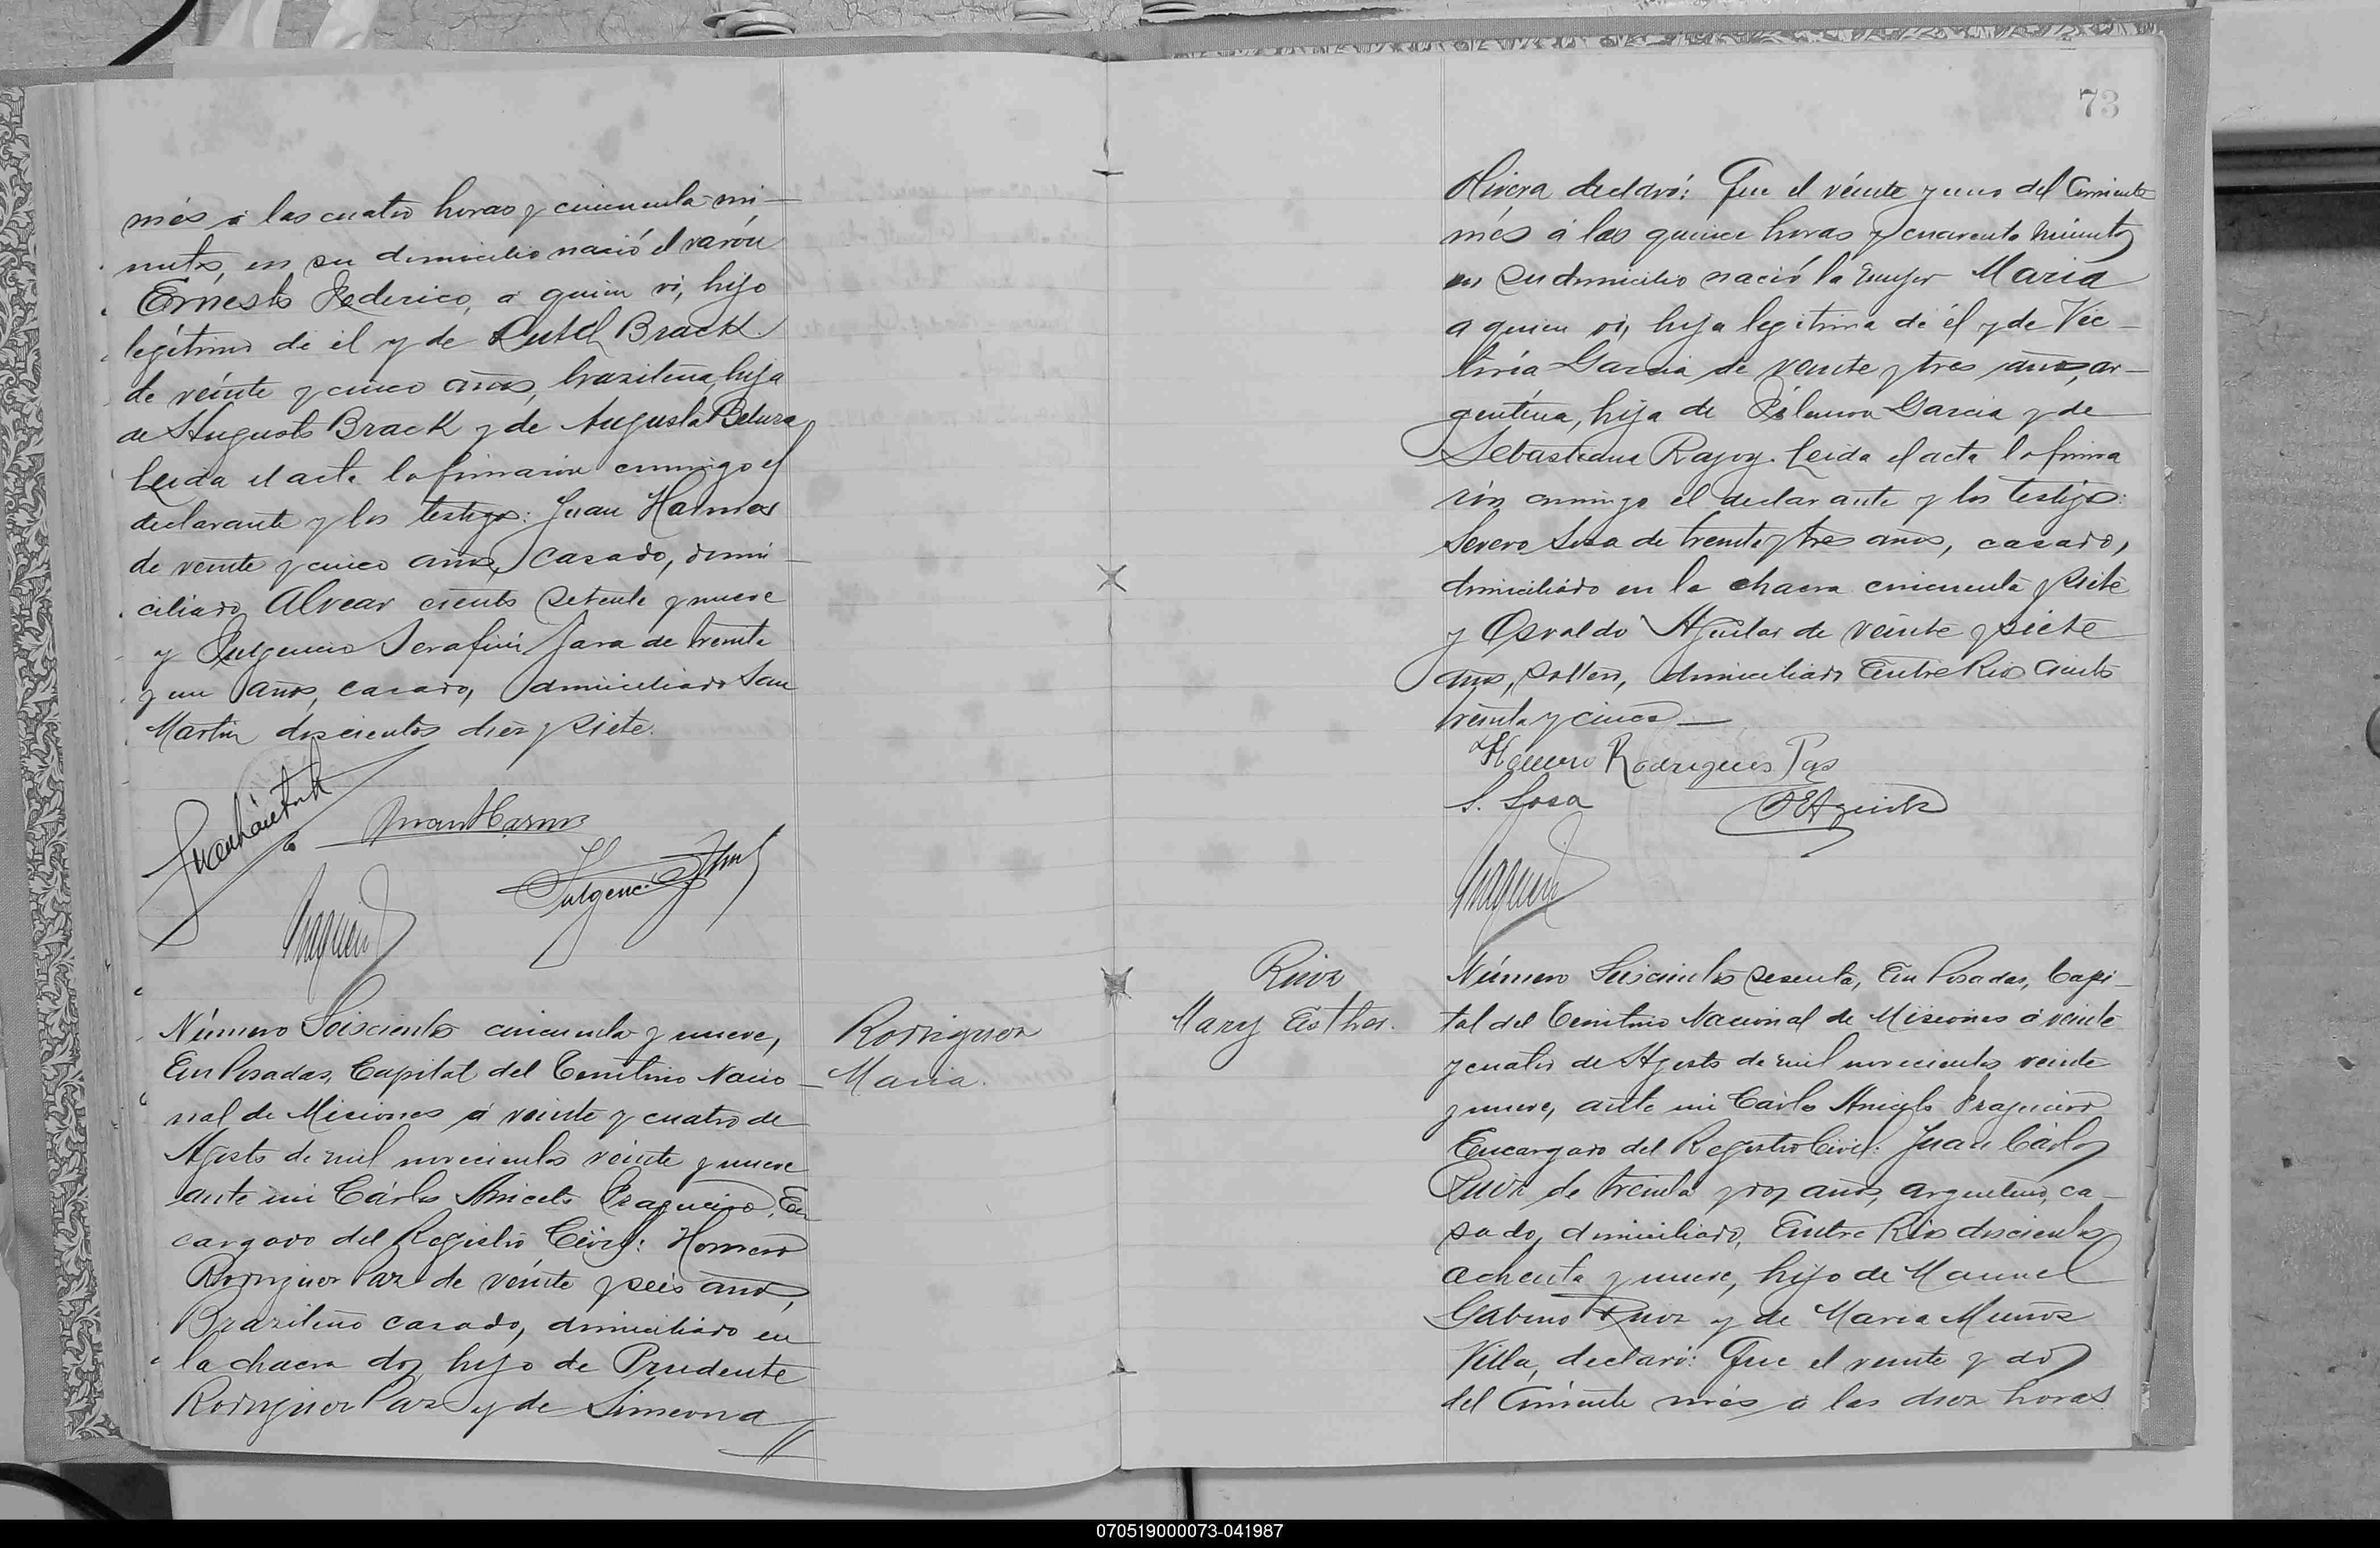 més á las cuatro horas y cincuenta mi-
nutos, en su domicilio nació el varón
Ernesto Federico, a quien vi, hijo
legítimo de él y de Brack
de veinte y cinco años, brazileña, hija
de Augusto Brack y de Augusta
Leida el acta la firmaron conmigo el
declarante y los testigos: Juan
de veinte y cinco años, casado, domi-
ciliado Alvear ciento setenta y nueve
y Fulgencio Serafin Jara de treinta
y un años, casado, domiciliado San
Martin doscientos diez y siete.
Número Seiscientos cincuenta y nueve,
En Posadas, Capital del Territorio Nacio-
nal de Misiones á veinte y cuatro de
Agosto de mil novecientos veinte y nueve
ante mi Cárlos Aniceto Fragueiro, En
cargado del Registro Civil: Homero
Rodriguez Paz de veinte y seis años,
Brazileño casado, domiciliado en
la chacra dos, hijo de Prudente
Rodriguez Paz y de Simeona
Rodriguez
Maria.
73
Rivera declaró: Que el veinte y uno del Corriente
més á las quince horas y cuarenta minutos
en su domicilio nació la mujer Maria
a quien vi, hija legitima de él y de Vic-
toria Garcia de veinte y tres años, ar-
gentina, hija de Garcia y de
Sebastiana Leida el acta la firma
ron conmigo el declarante y los testigos:
Severo Sosa de treinta y tres años, casado,
domiciliado en la chacra cincuenta y siete
y Osvaldo Aguilar de veinte y siete
años, soltero, domiciliado Entre Rios ciento
treinta y cinco—
Homero Rodrigues Paz
S. Sosa
Ruiz
Mary Esther.
Número Seiscientos sesenta, En Posadas, Capi-
tal del Territorio Nacional de Misiones á veinte
y cuatro de Agosto de mil novecientos veinte
y nueve, ante mi Carlos Aniceto Fragueiro
Encargado del Registro Civil: Juan Cárlos
Ruiz de treinta y dos años, argentino, ca-
sado, domiciliado, Entre Rios doscientos
ochenta y nueve, hijo de Manuel
Gabino Ruiz y de Maria Muñoz
Villa, declaró: Que el veinte y dos
del Corriente més á las diez horas
070519000073-041987